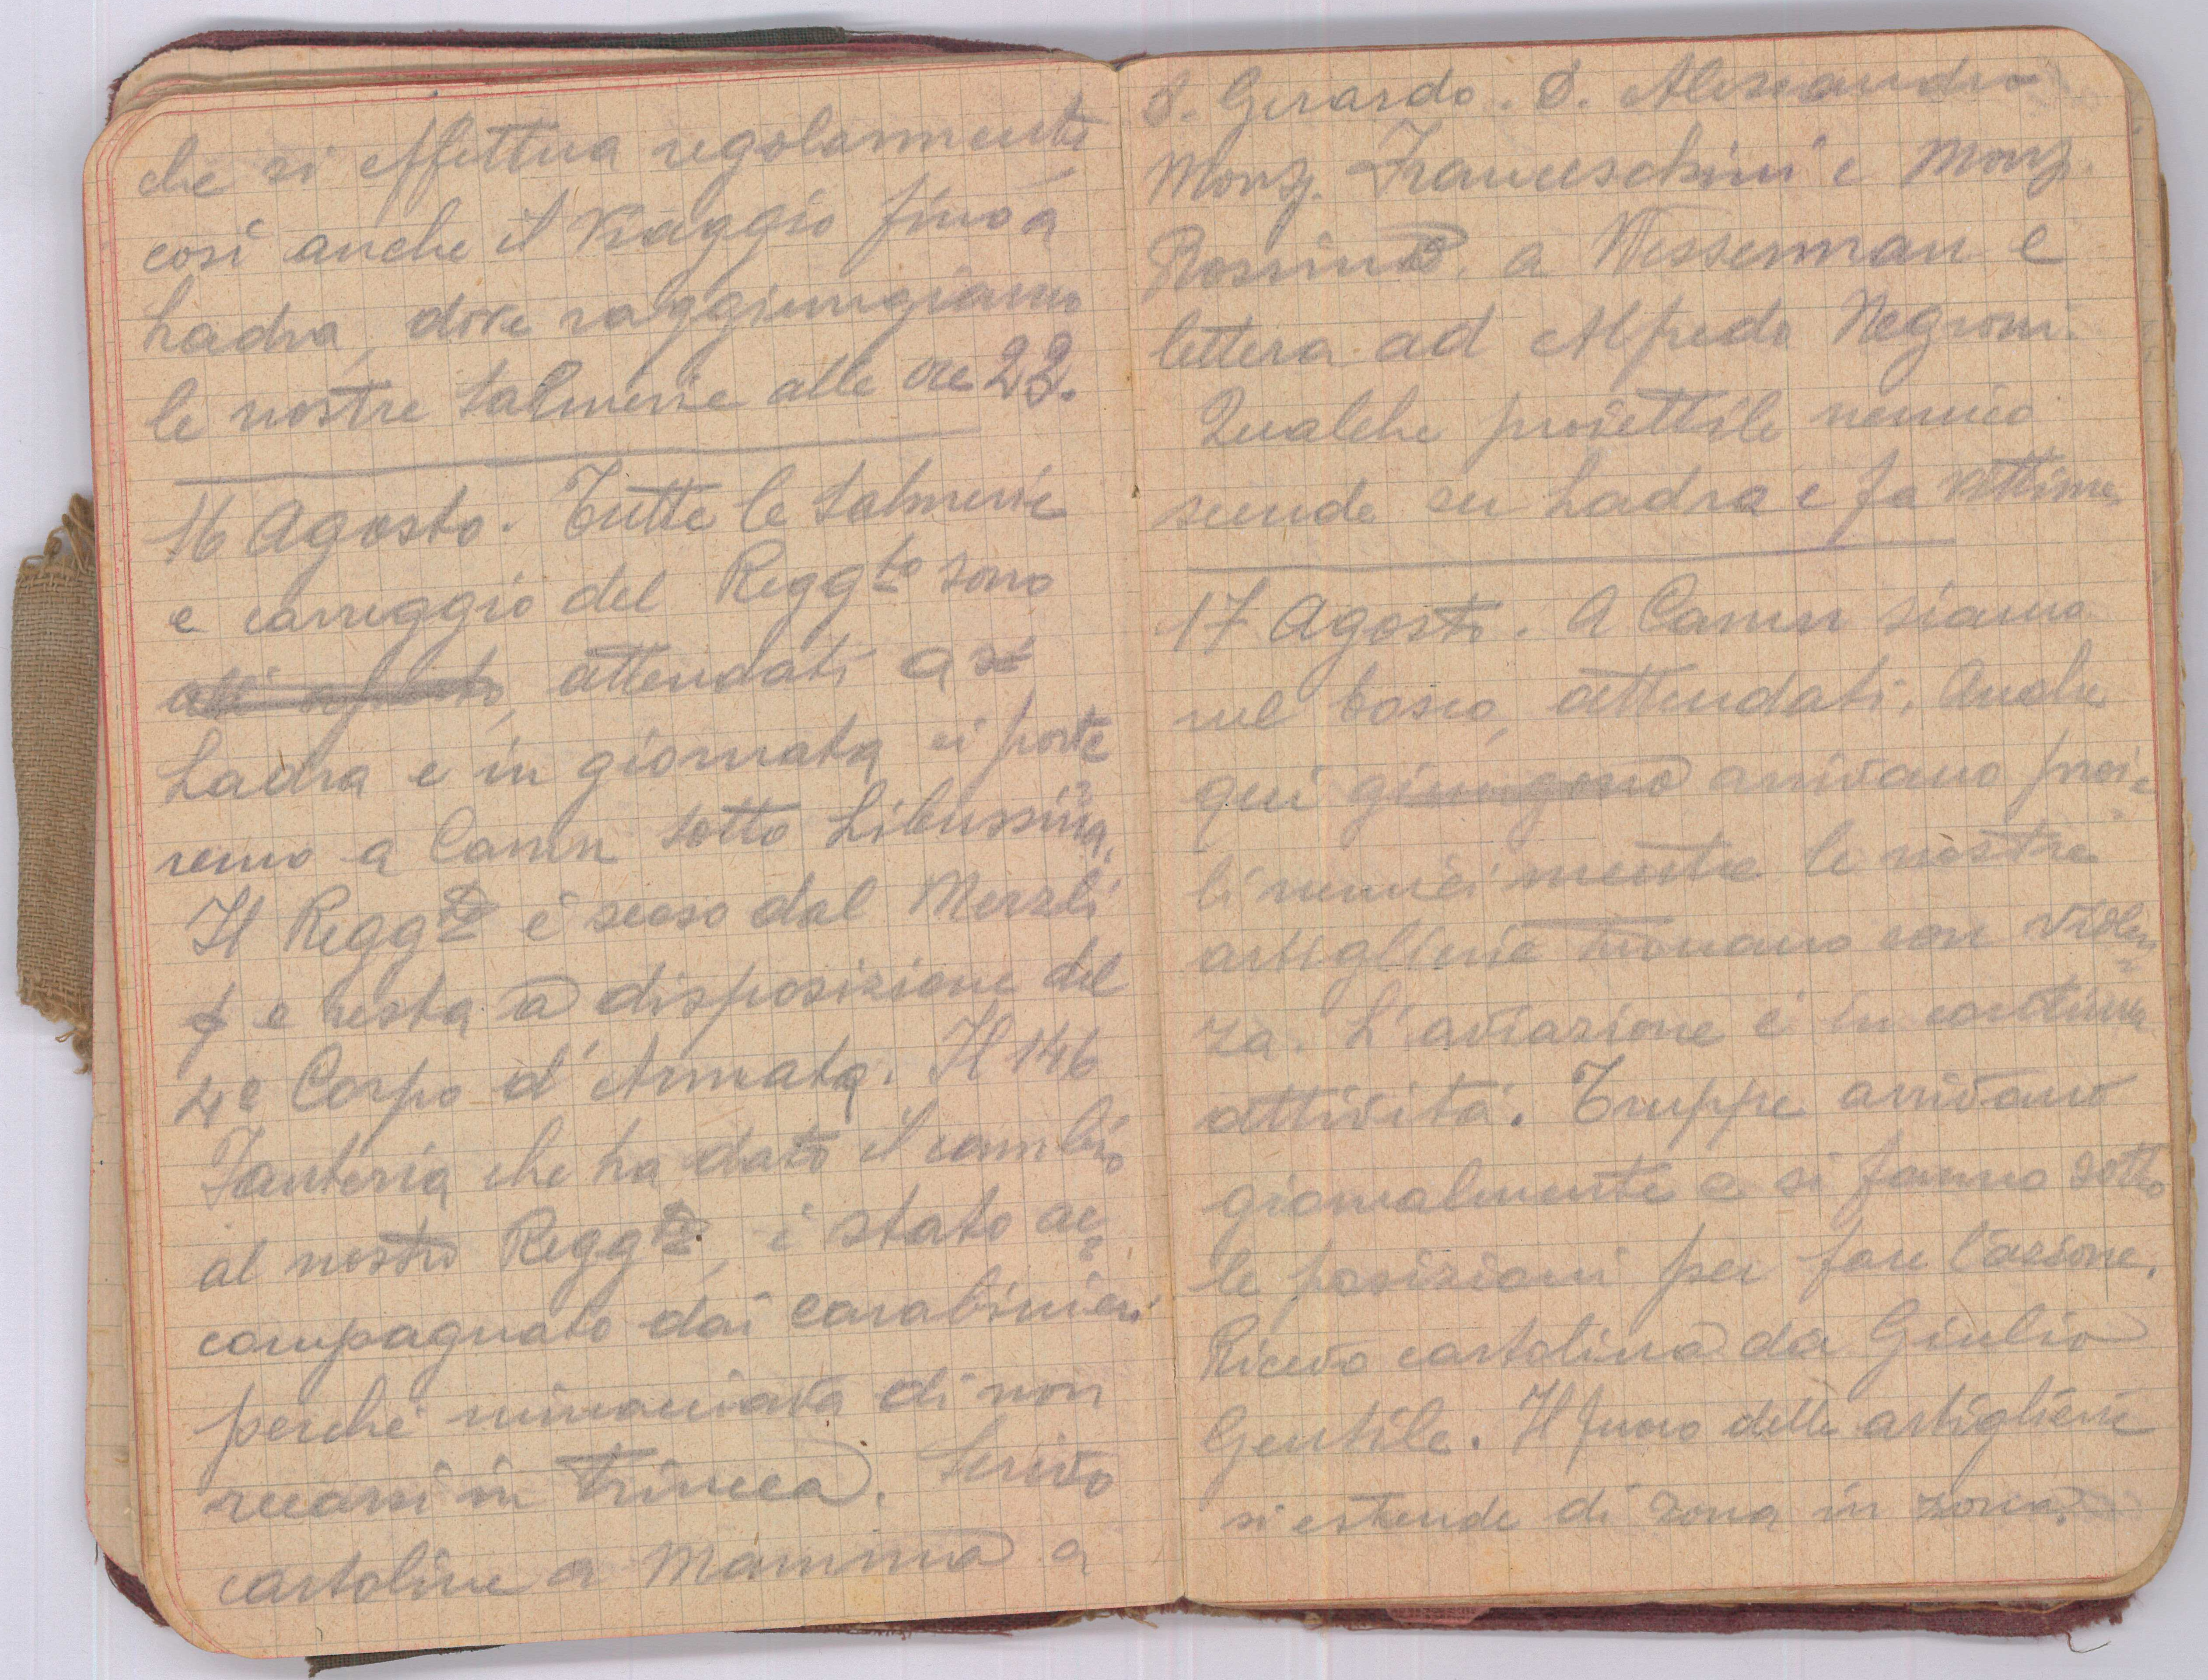 che si effettua regolarmente
così anche il viaggio fino a
Ladra, dove raggiungiamo
le nostre salmerie alle ore 22.
16 Agosto. Tutte le salmerie
e carreggio del Regg.to sono
attendati a
Ladra e in giornata ci porte
remo a Camn sotto Libussina.
Il Regg.to è sceso dal Merzli
e resta a disposizione del
4° Corpo d'Armata. Il 146
Fanteria che ha dato il cambio
al nostro Regg.to, è stato ac=
compagnato dai carabinieri
perché minacciava di non
recarsi in trincea. Scrivo
cartoline a Mamma a
S. Gerardo. S. Alessandro
Monz. Franceschini e Monz.
Rossini. a Wesserman e
lettera ad Alfredo Negroni.
Qualche proiettile nemico
scende su Ladra e fa vittime
17 Agosto. A Camn siamo
nel bosco, attendati. Anche
qui giungono arrivano proie=
li nemici mentre le nostre
artiglierie tuonano con violen=
za. L'aviazione è in continua
attività. Truppe arrivano
giornalmente e si fanno sotto
le posizioni per fare l'azione.
Ricevo cartolina da Giulio
Gentile. Il fuoco delle artiglierie
si estende di zona in zona.